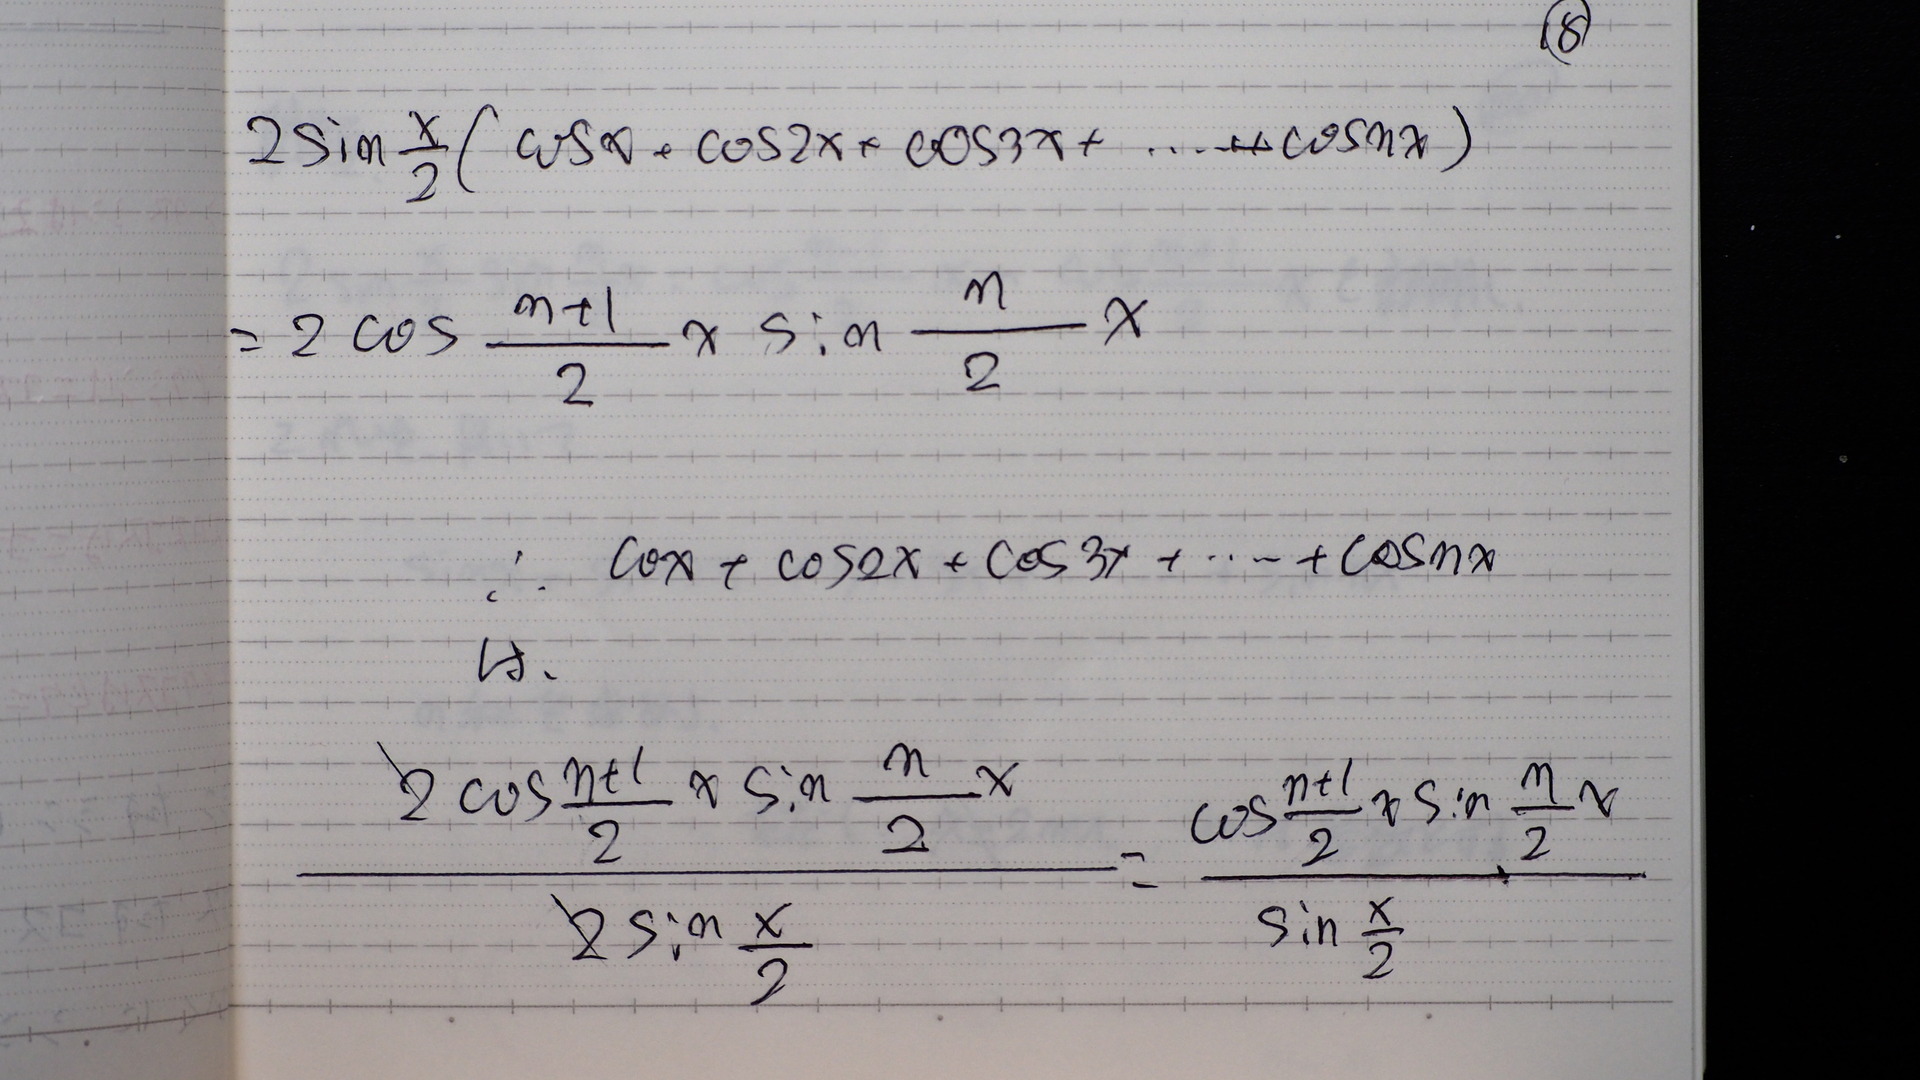 ⑧
2 sin x/2 ( cos x + cos 2x + cos 3x + ..... + cos nx )
= 2 cos (n+1)/2 x sin n/2 x
∴ cox + cos 2x + cos 3x + ..... + cos nx
は、
(2 cos (n+1)/2 x sin n/2 x) / (2 sin x/2) = (cos (n+1)/2 x sin n/2 x) / (sin x/2)